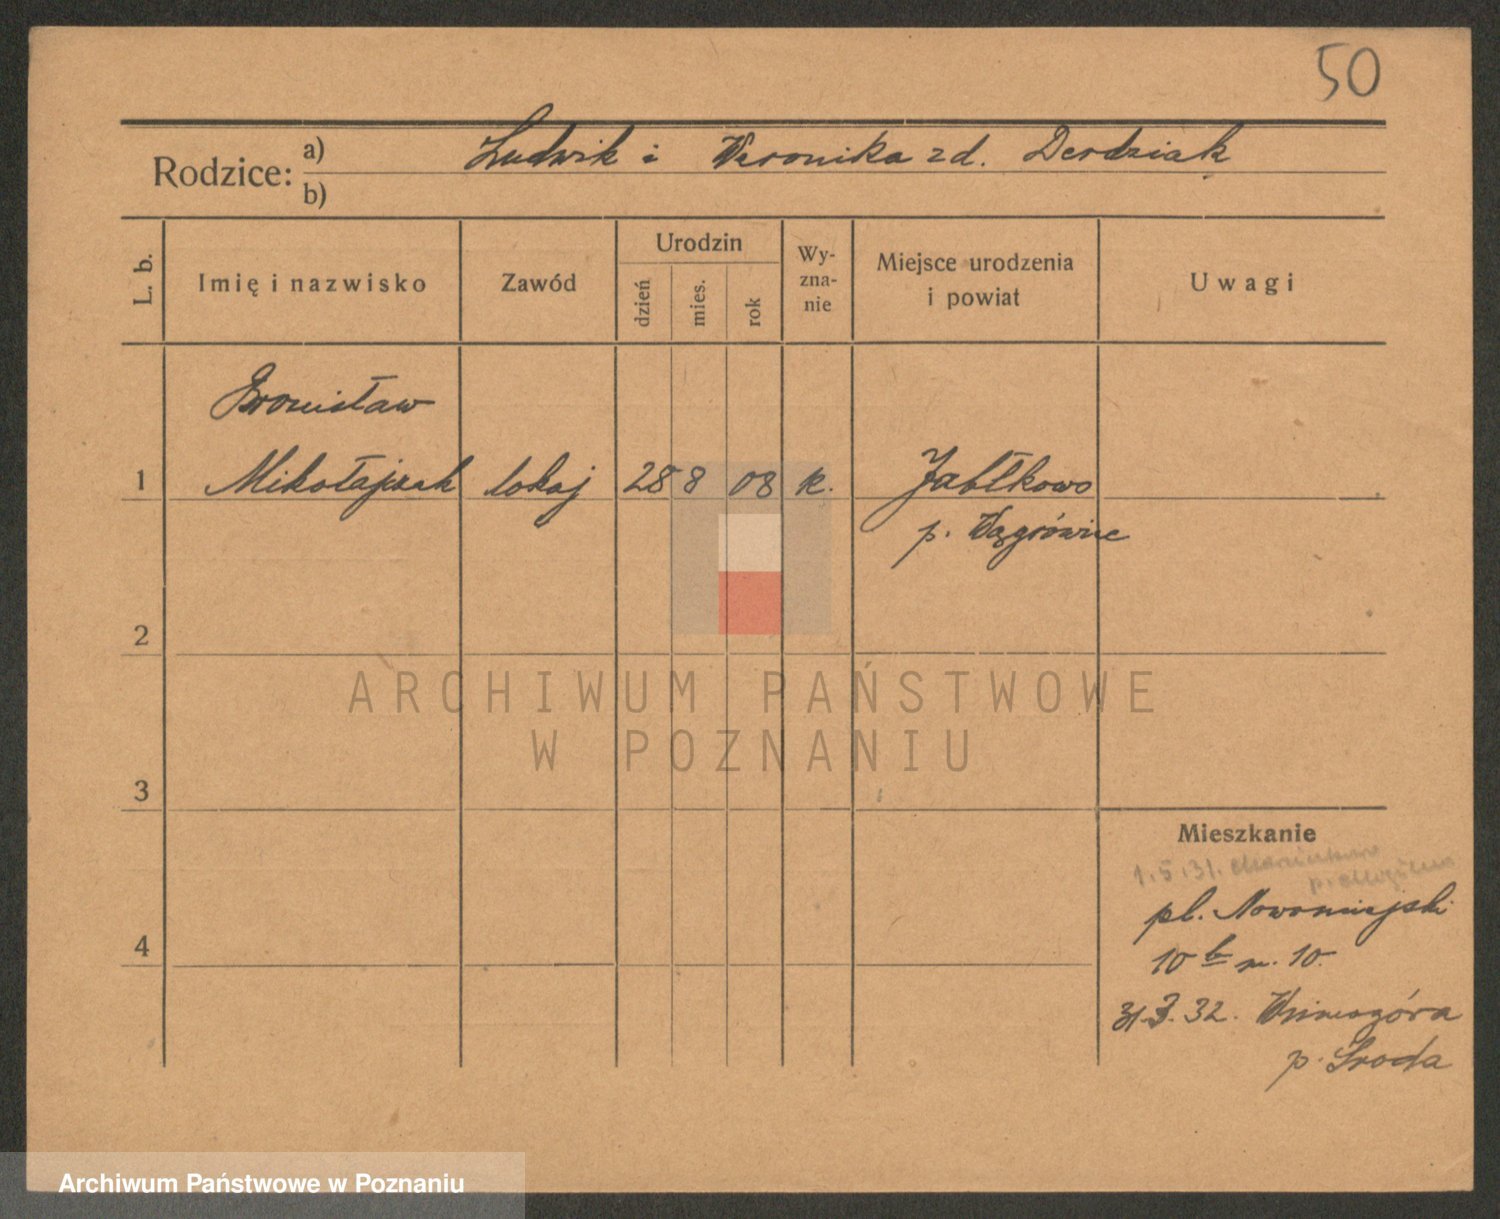 50
Rodzice: a) Ludwik i Weronika zd. Derdziak
b)
L. b.
Imię i nazwisko
Zawód
Urodzin
dzień
mies.
rok
Wy-
zna-
nie
Miejsce urodzenia
i powiat
Uwagi
Bronisław
1 Mikołajczak lokaj 28 8 08 k. Jabłkowo
p. Wągrówiec
2
ARCHIWUM PAŃSTWOWE
W POZNANIU
3
Mieszkanie
1.5.31.
pl. Nowomiejski
4
10 b m. 10.
31.3.32. Winnogóra
p. Środa
Archiwum Państwowe w Poznaniu